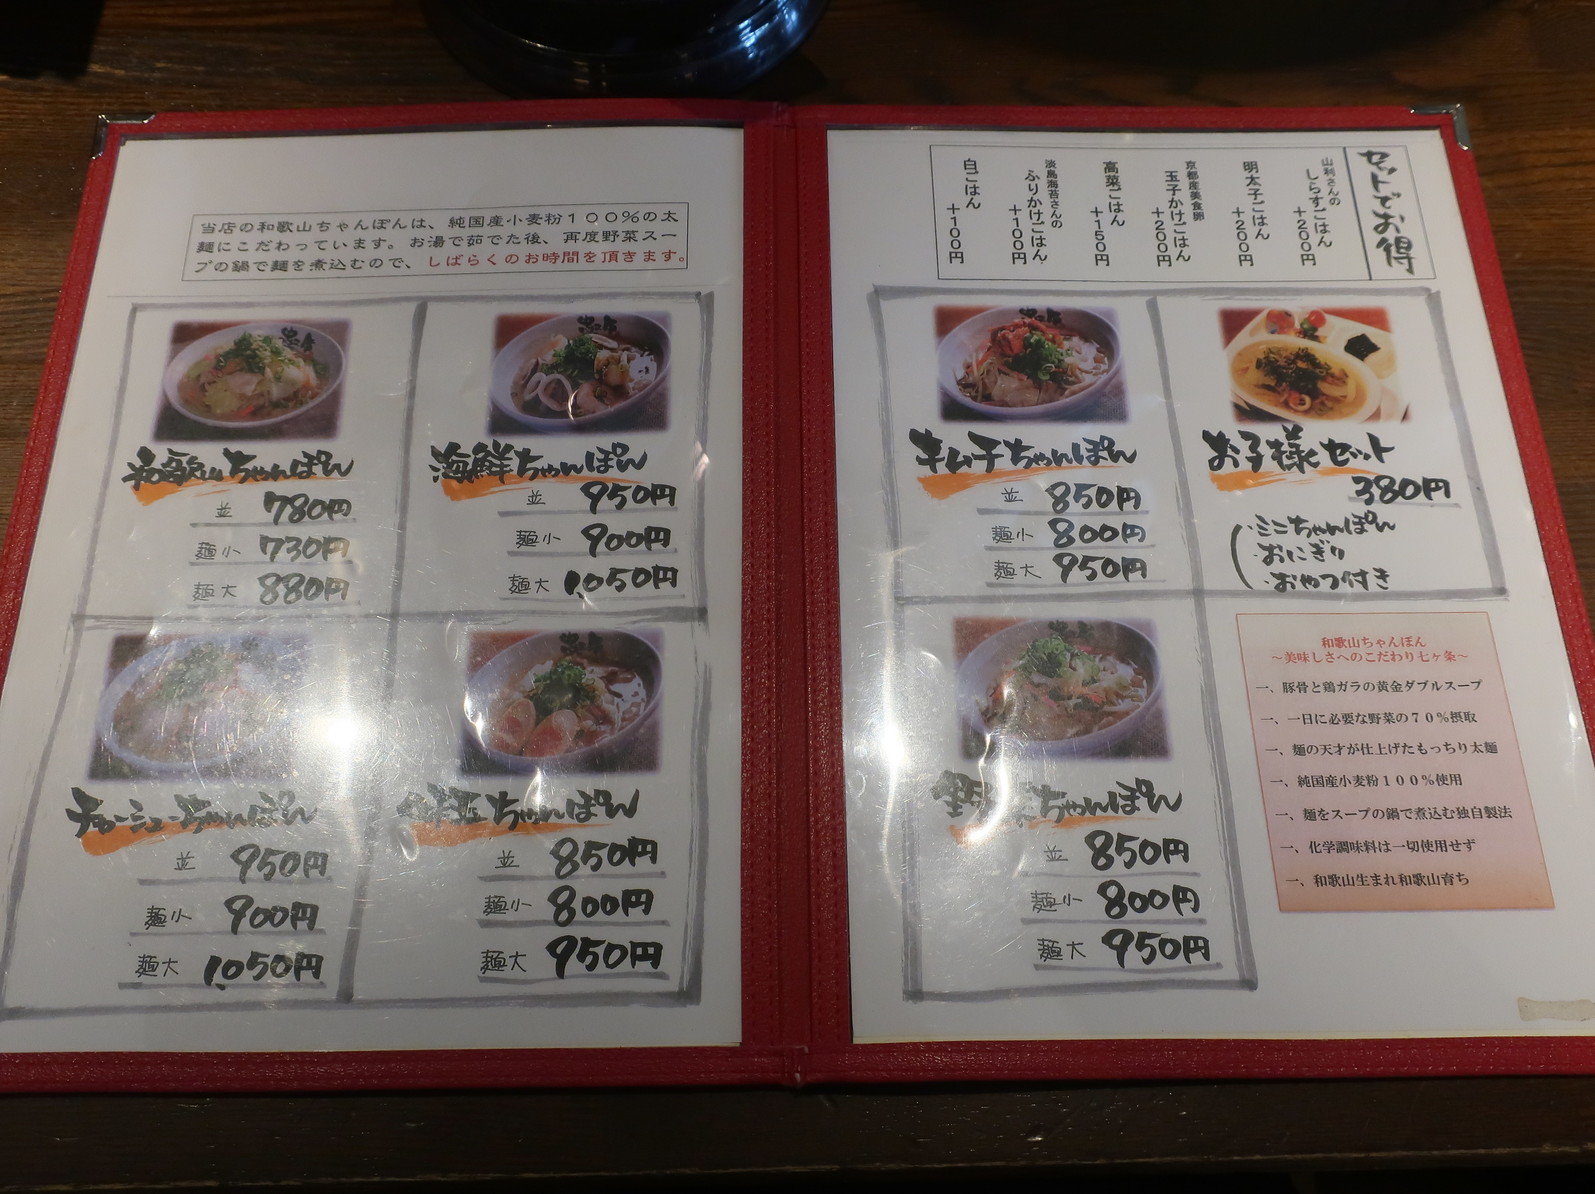 当店の和歌山ちゃんぽんは、純国産小麦粉１００％の太
麺にこだわっています。お湯で茹でた後、再度野菜スー
プの鍋で麺を煮込むので、しばらくのお時間を頂きます。
和歌山ちゃんぽん
並 780円
麺小 730円
麺大 880円
海鮮ちゃんぽん
並 950円
麺小 900円
麺大 1,050円
チャーシューちゃんぽん
並 950円
麺小 900円
麺大 1,050円
ちゃんぽん
並 850円
麺小 800円
麺大 950円
セットでお得
山利さんの
しらすごはん
＋200円
明太子ごはん
＋200円
京都産美食卵
玉子かけごはん
＋200円
高菜ごはん
＋150円
淡島海苔さんの
ふりかけごはん
＋100円
白ごはん
＋100円
キムチちゃんぽん
並 850円
麺小 800円
麺大 950円
お子様セット
380円
・ミニちゃんぽん
・おにぎり
・おやつ付き
ちゃんぽん
並 850円
麺小 800円
麺大 950円
和歌山ちゃんぽん
～美味しさへのこだわり七ヶ条～
一、豚骨と鶏ガラの黄金ダブルスープ
一、一日に必要な野菜の７０％摂取
一、麺の天才が仕上げたもっちり太麺
一、純国産小麦粉１００％使用
一、麺をスープの鍋で煮込む独自製法
一、化学調味料は一切使用せず
一、和歌山生まれ和歌山育ち